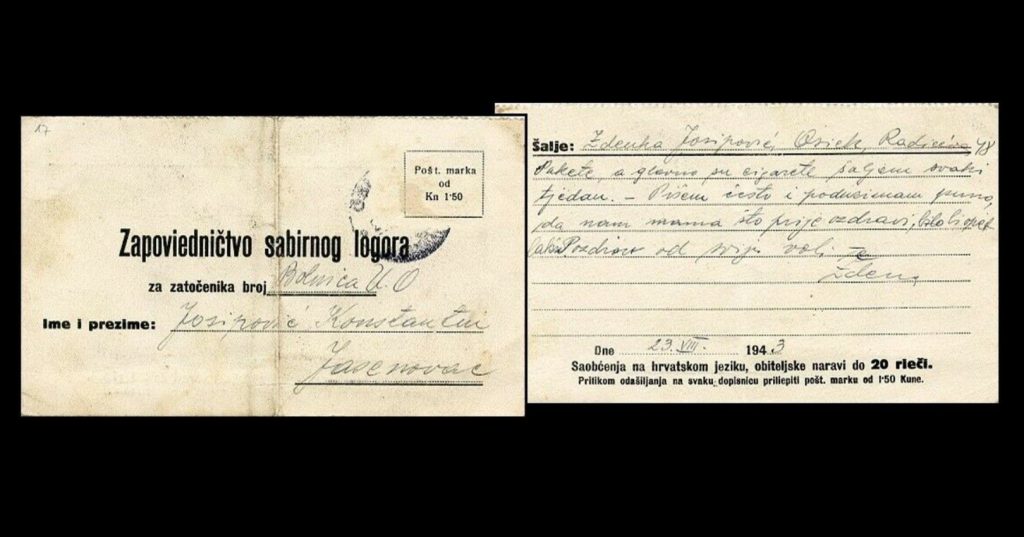 17
Pošt. marka
od
Kn 1·50
Zapovjedničtvo sabirnog logora
za zatočenika broj Bolnica U. O
Ime i prezime: Josipović Konstantin
Jasenovac
Šalje: Zdenka Josipović, Osiek, Radićeva 48
Pakete a glavno su cigarete šaljem svaki
tjedan. – Pišem često i poduzimam
da nam mama što prije ozdravi,
Pozdrav od sviju voli Te
Zdenka
Dne 23. VIII. 1943
Saobćenja na hrvatskom jeziku, obiteljske naravi do 20 rieči.
Prilikom odašiljanja na svaku dopisnicu priliepiti pošt. marku od 1·50 Kune.